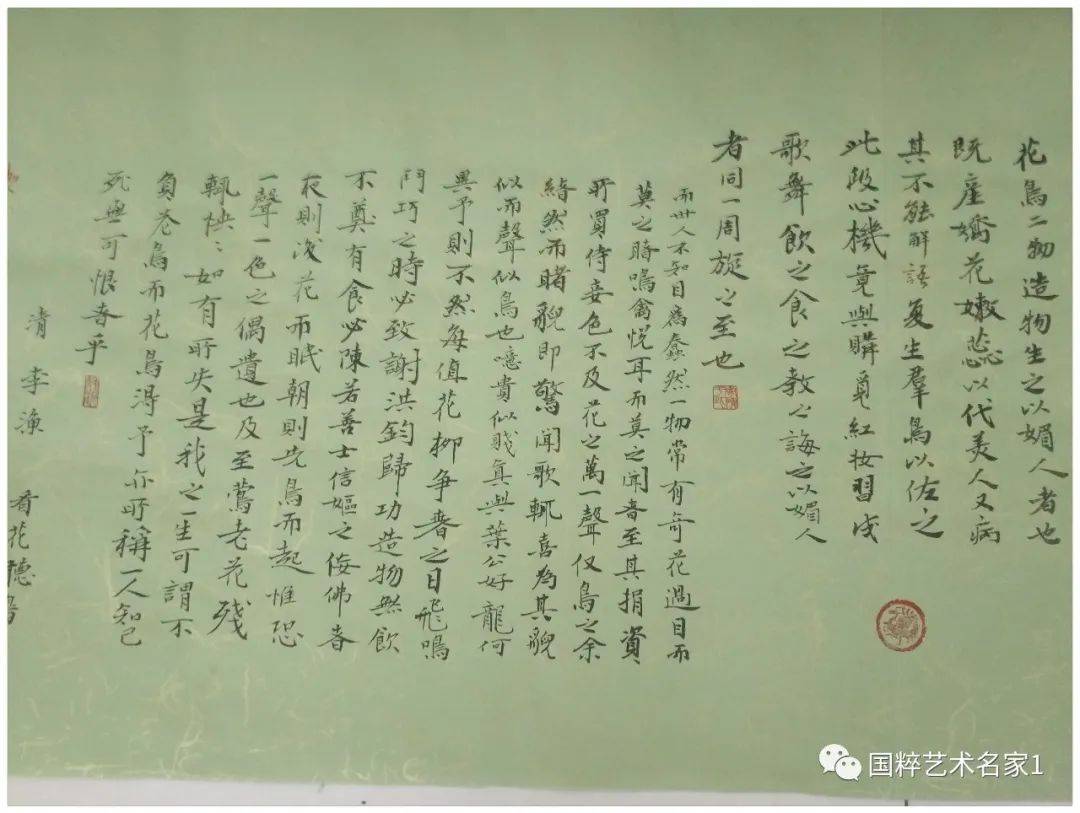 花鳥二物造物生之以媚人者也
既產嬌花嫩蕊以代美人又病
其不能解語复生羣鳥以佐之
此段心機竟與購覓紅妆習成
歌舞飲之食之教之誨之以媚人
者同一周旋之至也
而世人不知目為蠢然一物常有奇花過目而
莫之睹鳴禽悅耳而莫之聞者至其捐資
所買侍妾色不及花之萬一聲仅鳥之余
緒然而睹貌即驚聞歌輒喜為其貌
似而聲似鳥也噫貴似賤真與葉公好龍何
異予則不然每值花柳争春之日飛鳴
鬥巧之時必致謝洪鈞歸功造物無飲
不奠有食必陳若善士信嫗之佞佛者
夜則後花而眠朝則先鳥而起惟恐
一聲一色之偶遺也及至鶯老花殘
輒怏〻如有所失是我之一生可謂不
負花鳥而花鳥得予亦所稱一人知己
死無可恨者乎
清 李漁 看花聽鳥
国粹艺术名家1